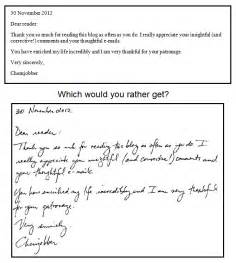 30 November 2012
Dear reader:
Thank you so much for reading this blog as often as you do. I really appreciate your insightful (and
corrective!) comments and your thoughtful e-mails.
You have enriched my life incredibly and I am very thankful for your patronage.
Very sincerely,
Chemjobber
Which would you rather get?
30 November 2012
Dear reader:
Thank you so much for reading this blog as often as you do I
really appreciate your insightful (and corrective!) comments and
your thoughtful e-mails.
You have enriched my life incredibly and I am very thankful
for your patronage.
Very sincerely
Chemjobber